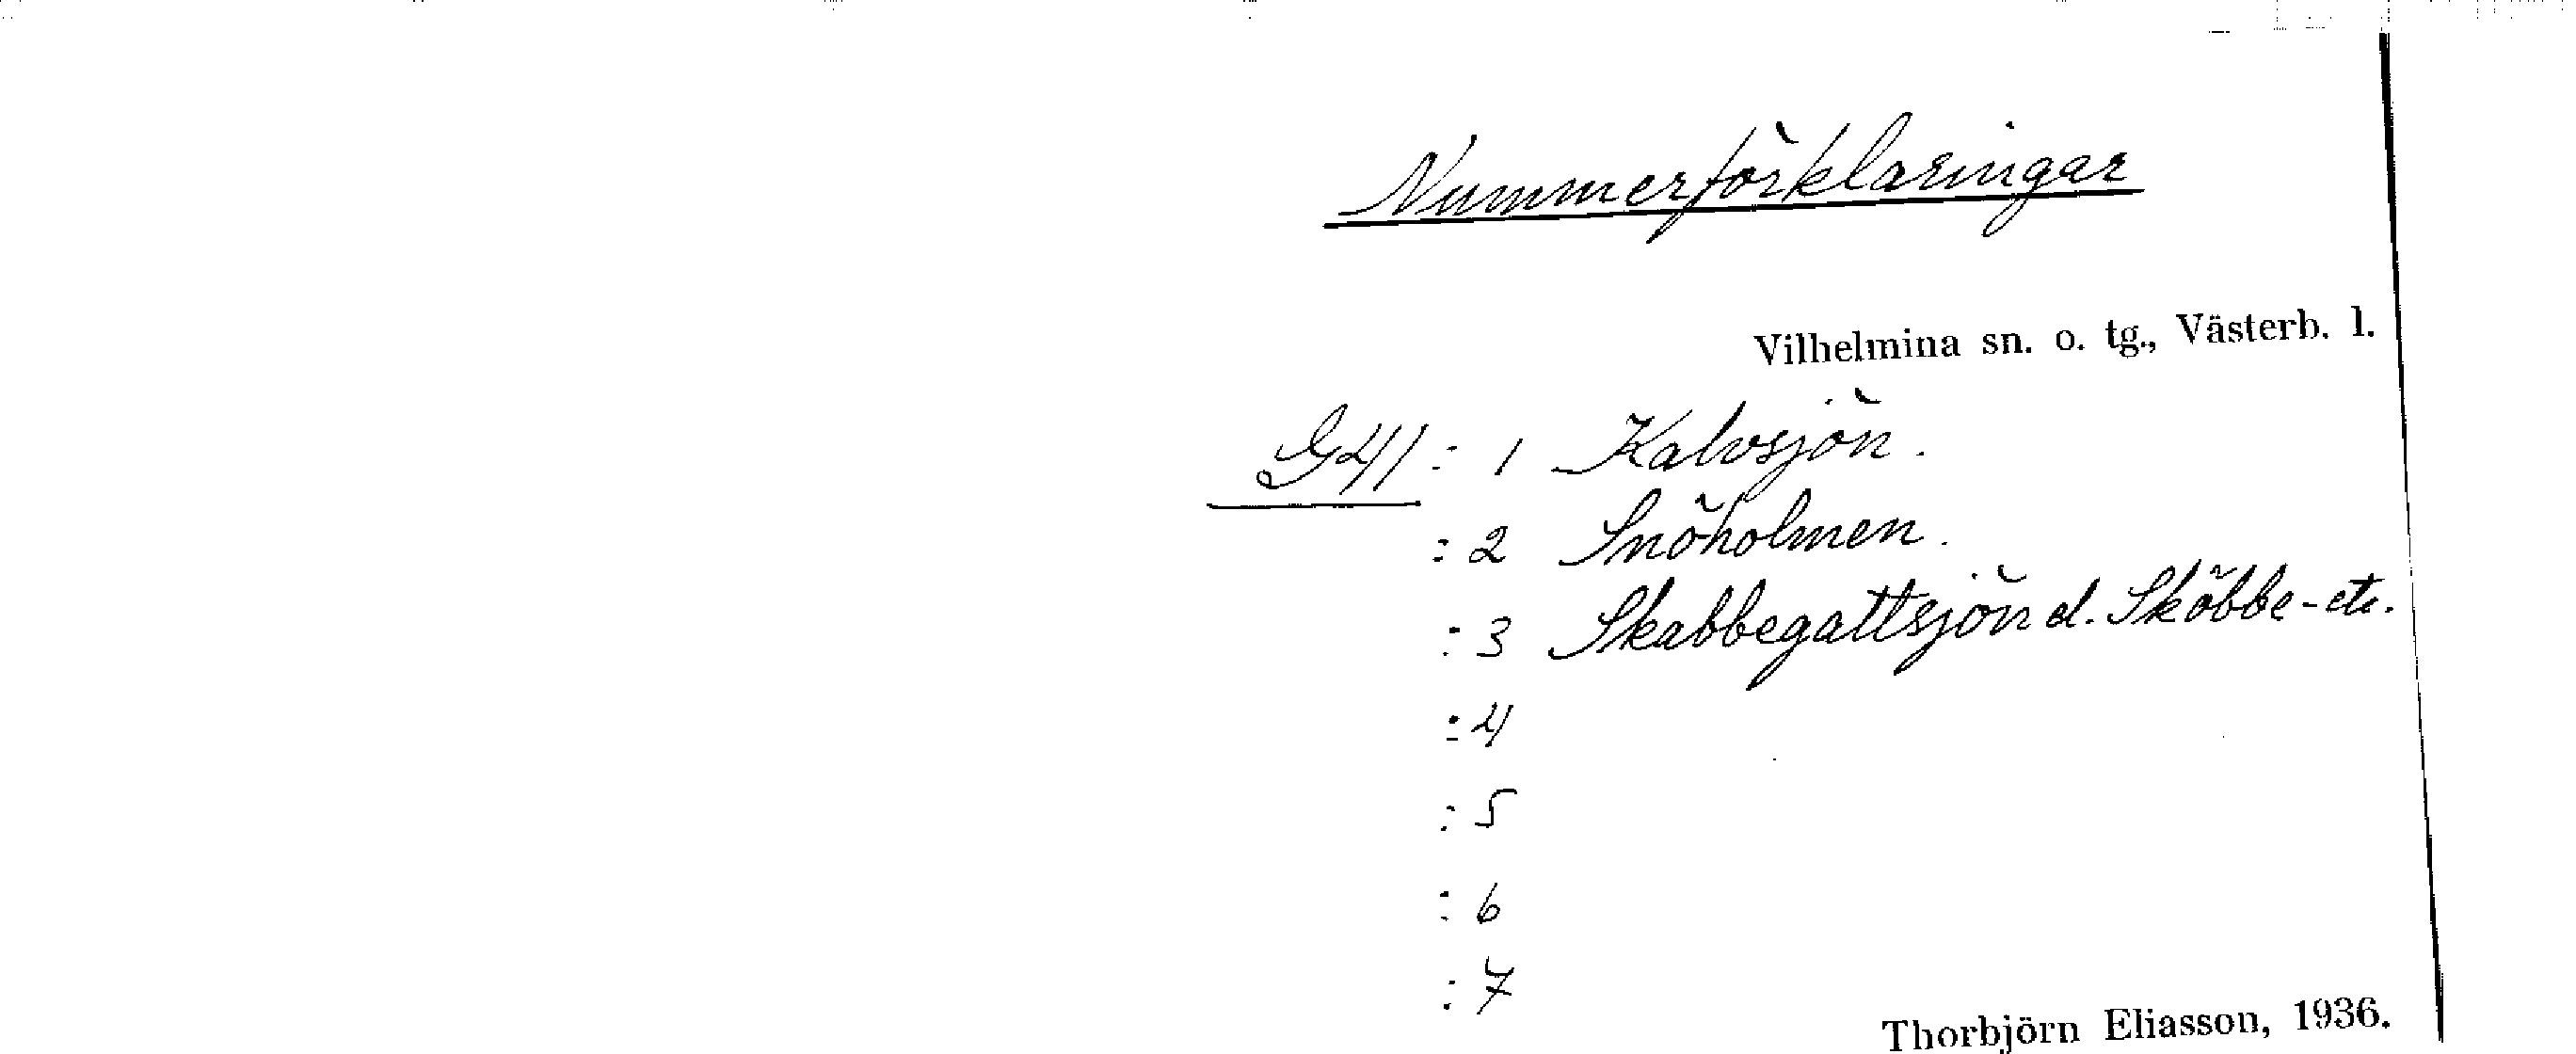 Nummerförklaringar
Vilhelmina sn. o. tg., Västerb. l.
G41 : 1 Kalvsjön.
: 2 Snöholmen.
: 3 Skabbegattsjön el. Sköbbe-etc.
: 4
: 5
: 6
: 7
Thorbjörn Eliasson, 1936.